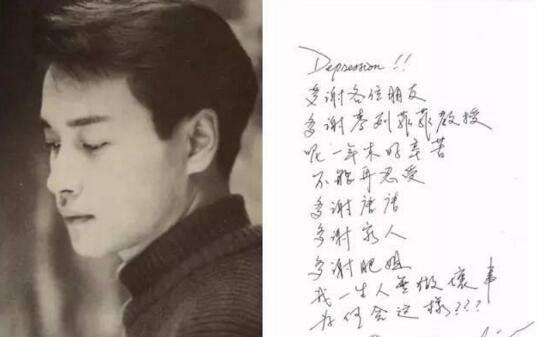 Depression!!
多謝各位朋友
多謝麥列菲菲教授
呢一年来好辛苦
不能再忍受
多謝唐唐
多謝家人
多謝肥姐
我一生人無做壞事
為何会這樣???